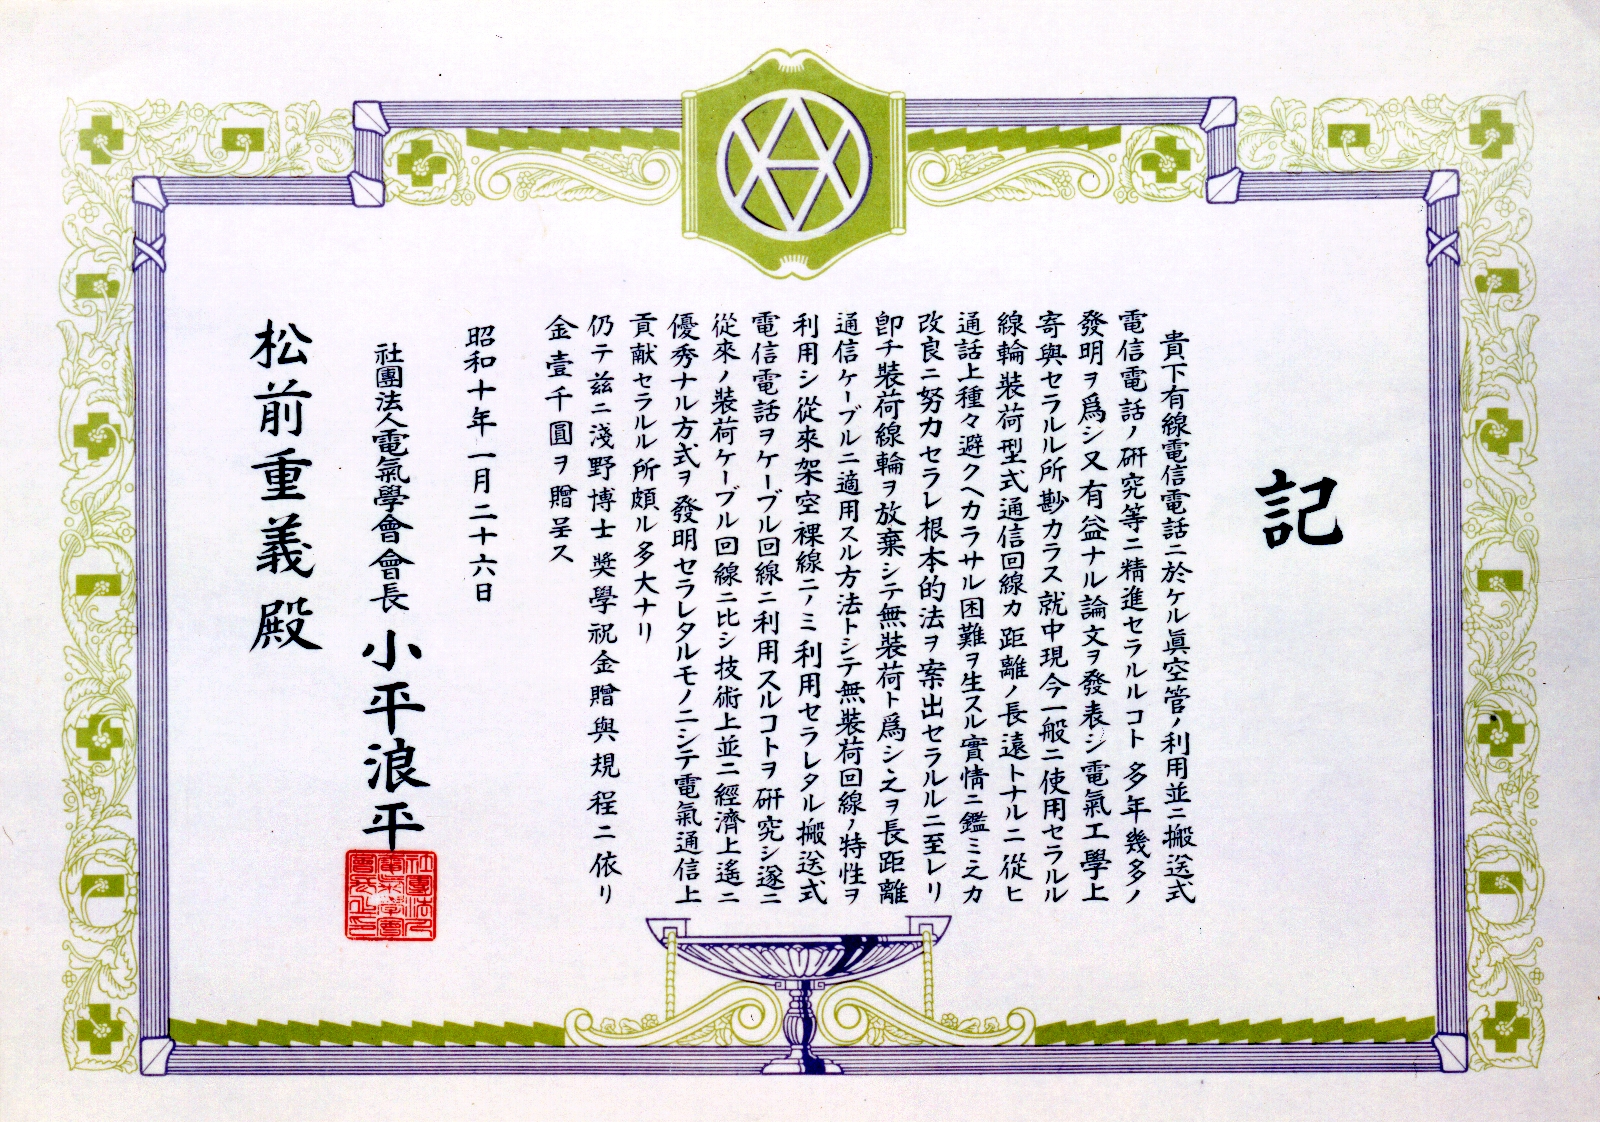 記
貴下有線電信電話ニ於ケル眞空管ノ利用並ニ搬送式
電信電話ノ研究等ニ精進セラルルコト多年幾多ノ
發明ヲ爲シ又有益ナル論文ヲ發表シ電氣工學上
寄與セラルル所尠カラス就中現今一般ニ使用セラルル
線輪裝荷型式通信回線カ距離ノ長遠トナルニ從ヒ
通話上種々避クヘカラサル困難ヲ生スル實情ニ鑑ミ之カ
改良ニ努力セラレ根本的法ヲ案出セラルルニ至レリ
卽チ裝荷線輪ヲ放棄シテ無裝荷ト爲シ之ヲ長距離
通信ケーブルニ適用スル方法トシテ無裝荷回線ノ特性ヲ
利用シ從來架空裸線ニノミ利用セラレタル搬送式
電信電話ヲケーブル回線ニ利用スルコトヲ研究シ遂ニ
從來ノ裝荷ケーブル回線ニ比シ技術上並ニ經濟上遙ニ
優秀ナル方式ヲ發明セラレタルモノニシテ電氣通信上
貢献セラルル所頗ル多大ナリ
仍テ茲ニ淺野博士奬學祝金贈與規程ニ依リ
金壹千圓ヲ贈呈ス
昭和十年一月二十六日
社團法人電氣學會會長 小平浪平
社團法人
電氣學會
會長之印
松前重義殿